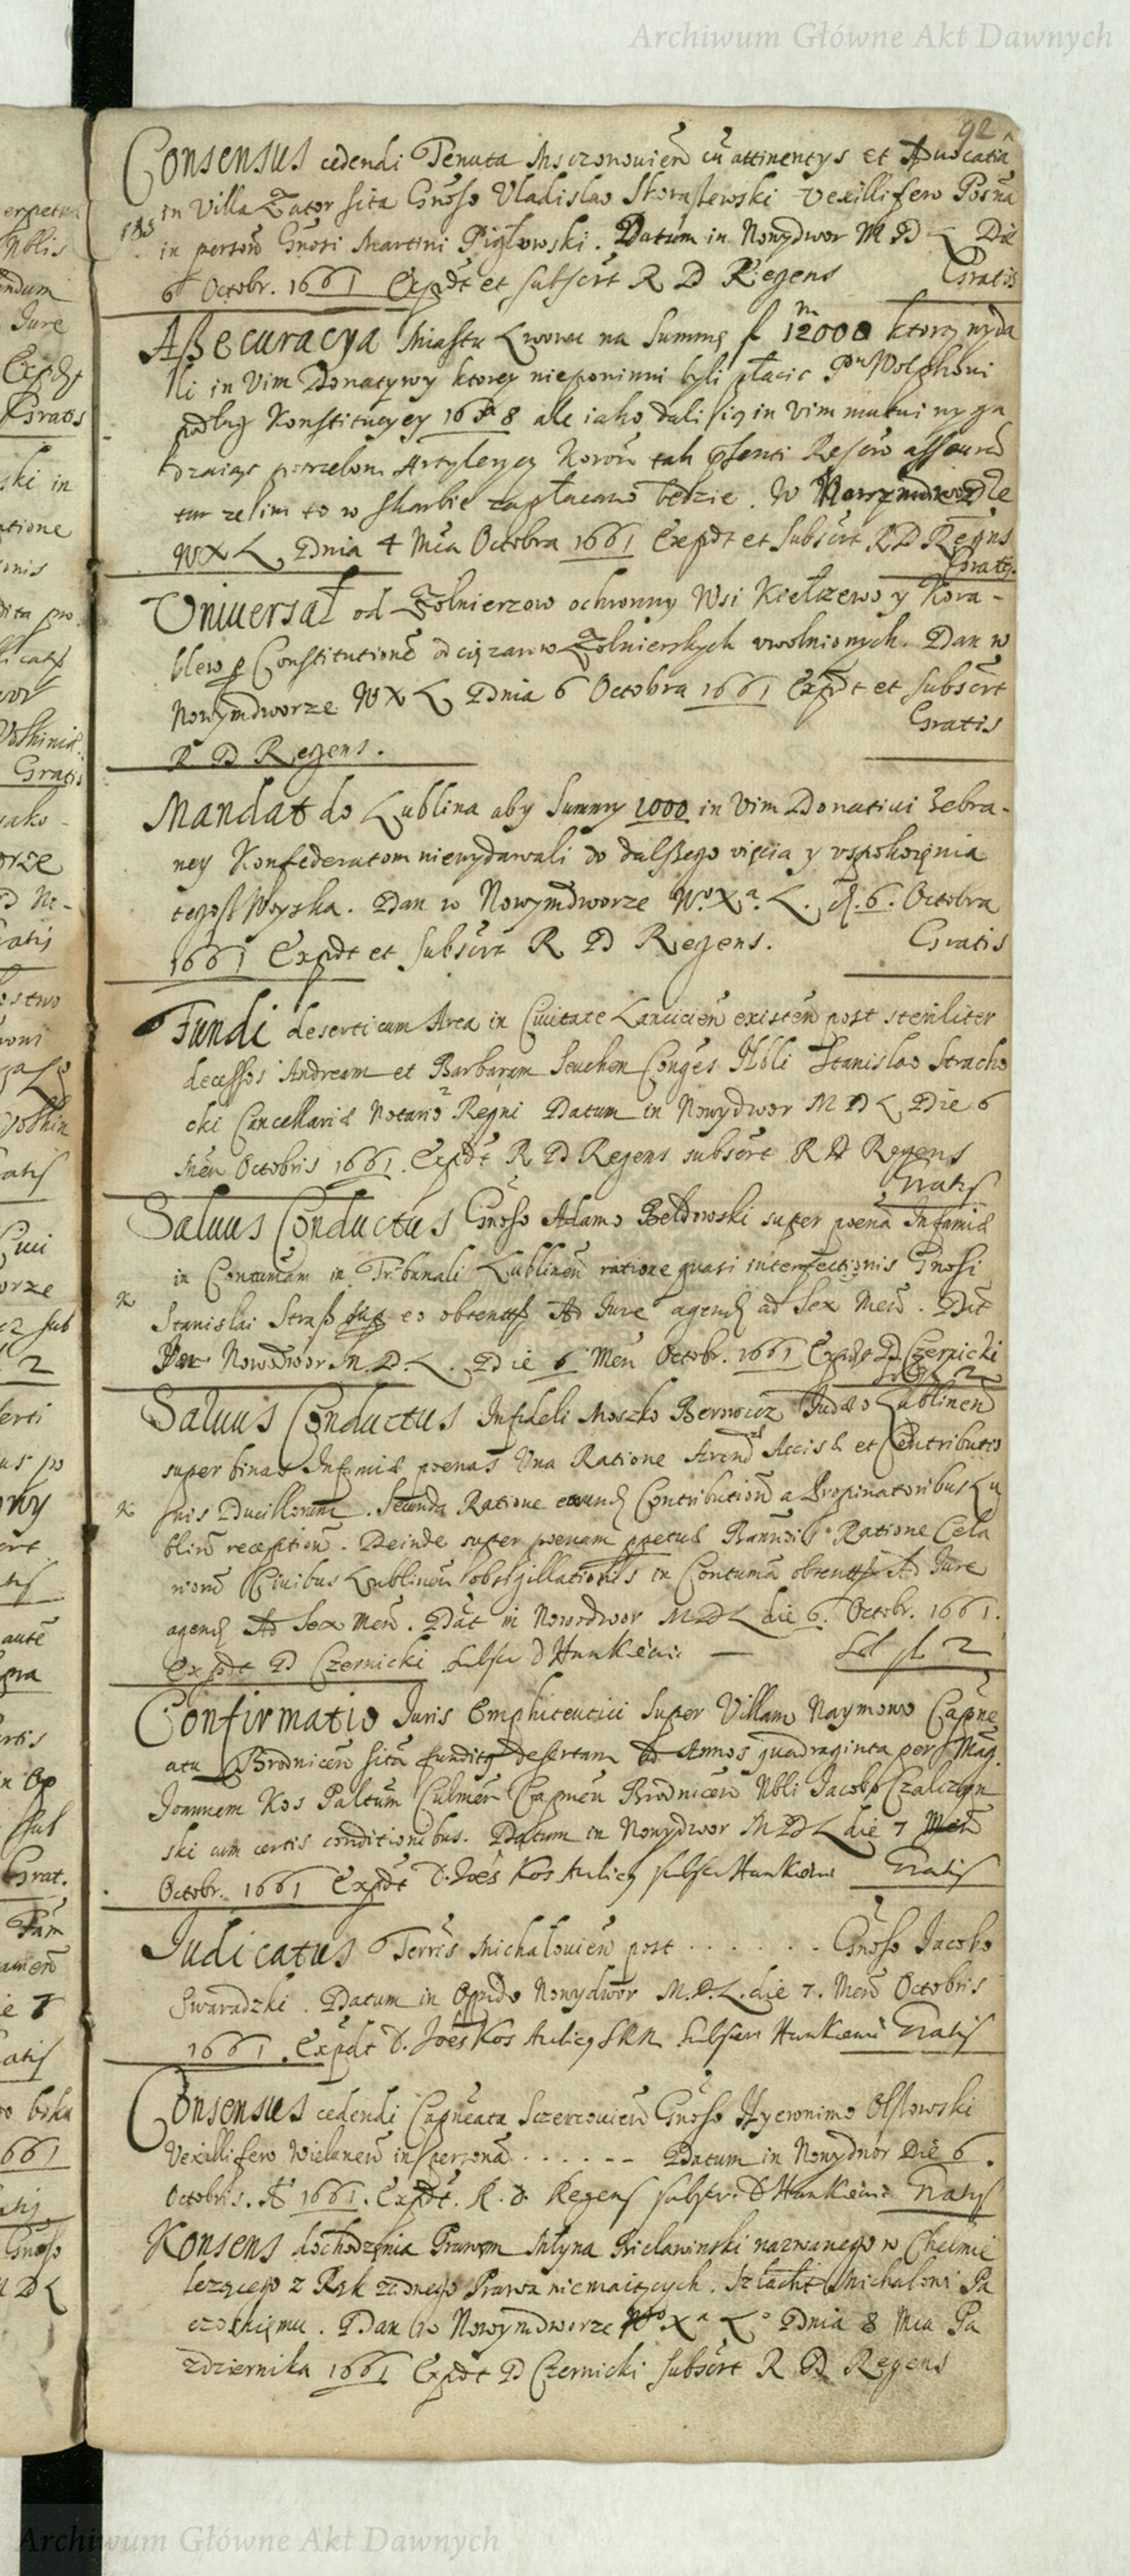 Archiwum Główne Akt Dawnych
92
Consensus cedendi Tenuta Mszczonovien̄ cū attinentys et Aduocatia
in Villa Zator sita Gn̄oso Vladislao Skoraszewski Vexillifero Posna
in person̄ Gn̄osi Martini Pigłowski. Datum in Nowydwor M D L Die
6 Octobr. 1661 Exp̄dt et subscrt R D Regens Gratis
Assecuracya Miastu Lwowu na Summę f 12000 m ktorą wyda
li in Vim Donatywy ktorey niepowinni byli płacic Pnu Wolphowi
podług Konstitucyey 1658 ale iako dali się in Vim mutui wyga
dzaiąc potrzebom Artyleryey Koron̄ tak
tur ze im to w skarbie zapłacano będzie. W Nowymdworze
WXL Dnia 4 Mca Octobra 1661 Exp̄dt et Subscrt R D Regns
Gratis
Uniuersał od Żołnierzow ochronny Wsi Kiełczewo y Kora-
blew p Constitutionē od ciężarow Żołnierskych uwolnionych. Dan w
Nowymdworze WXL Dnia 6 Octobra 1661 Exp̄dt et subscrt
R D Regens. Gratis
Mandat do Lublina aby Summy 1000 in Vim Donatiui zebra-
ney Konfederatom niewydawali do dalszego vięcia y vspokoięnia
tegosz Woyska. Dan w Nowymdworze Wo Xa. L. d. 6. Octobra
1661 Exp̄dt et subscrt R D Regens. Gratis
Fundi deserti cum Area in Ciuitate Lancicien̄ existen̄ post steriliter
decessos Andream et Barbaram Seuchen Conges Nbli Stanislao Stracho
cki Cancellariæ Notario Regni Datum in Nowydwor M D L Die 6
Men̄ Octobris 1661. Exp̄dt R D Regens subscrt R D Regens
Gratis
Saluus Conductus Gn̄oso Adamo Bełdowski super poenā Infamiæ
in Contumam in Tribunali Lublinen̄ ratione quasi interfectionis Gnosi
Stanislai Strasz sup eo obtent Ad Jure agend ad Sex Men̄. Dat
Nowodwor M. D. L. Die 6 Men̄ Octobr. 1661 Exp̄dt D Czernicki
Saluus Conductus Infideli Moszko Berwowicz Judæo Lublinen̄
super binas Infamiæ poenas Una Ratione Arend Accisæ et Contributio
nis Ducillorum. Secunda Ratione Contribution̄ a Propinatoribus Lu
blin̄ reception̄. Deinde super poenam ppetuæ Bannois Ratione Cela
riorū Ciuibus Lublinen̄ obsigillationis in Contumā obtent Ad Jure
agend Ad Sex Men̄. Dat in Nowodwor M D L die 6. Octobr. 1661.
Exp̄dt D Czernicki Subscr D Hunkiewic — Sol fl 2
Confirmatio Juris Emphiteutici Super Villam Naymowo Capne
atu Brodnicen̄ sitā funditq desertam ad Annos quadraginta per Mag.
Joannem Kos Paltum Culmen̄ Capneu Brodnicen̄ Nbli Jacobo Czalczyn
ski cum certis conditionibus. Datum in Nowydwor M D L die 7 Men̄
Octobr. 1661 Exp̄dt D. Joēs Kos Aulicq subscr Hunkiewic Gratis
Judicatus Terris Michałouien̄ post . . . . . . Gn̄oso Jacobo
Swaradzki. Datum in Oppido Nowydwor M. D. L. die 7. Men̄ Octobris
1661. Exp̄dt D. Joēs Kos Aulicq SRM Subscr Hunkiewic Gratis
Consensus cedendi Capneata Szczercouien̄ Gn̄oso Hyeronimo Olszowski
Vexillifero Wielunen̄ in personā . . . . . . Datum in Nowydwor Die 6.
Octobris. A 1661. Exp̄dt. R. D. Regens subscr. D Hunkiewic Gratis
Konsens dochodzęnia Prawem Młyna Bielawinski nazwanego w Chełmie
lezącego z Rąk zadnego Prawa niemaiących. Szlacht Michałowi Pa
czoskięmu. Dan w Nowymdworze Wo Xa Lo Dnia 8 Mca Pa
zdziernika 1661 Exp̄dt D Czernicki subscrt R D Regens
Archiwum Główne Akt Dawnych